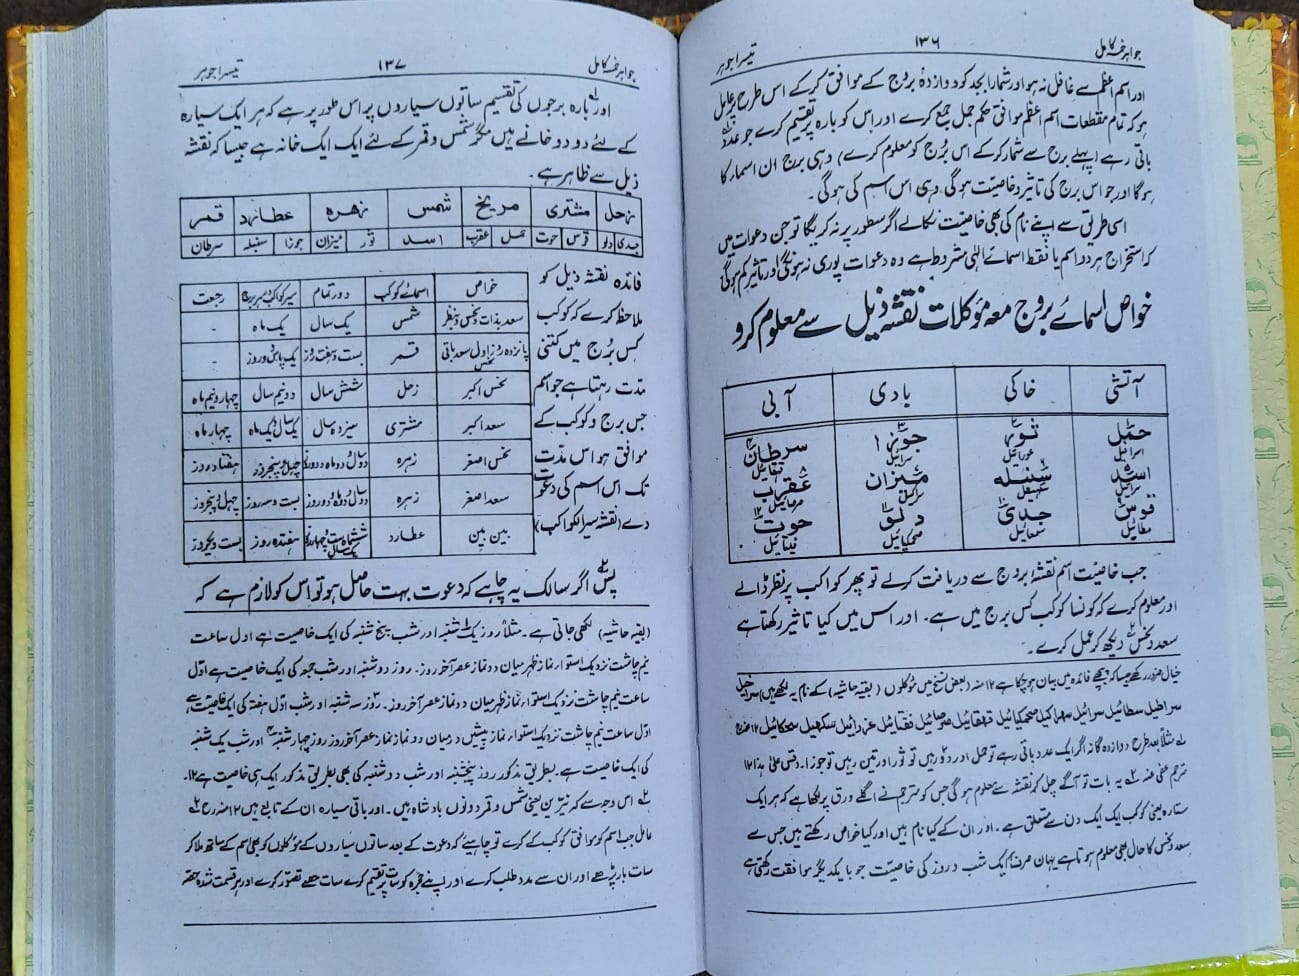 جواہر خمسہ کامل
۱۳۶
تیسرا جوہر
اور اسم اعظم سے غافل نہ ہو اور شمار ابجد کو دوازدہ بروج کے موافق کر کے اس طرح پر عامل
ہو کہ تمام مقطعات اسم اعظم موافق حکم جمل جمع کرے اور اس کو بارہ پر تقسیم کرے جو عدد
باقی رہے (پہلے برج سے شمار کر کے اس برج کو معلوم کرے) وہی برج ان اسماء کا
ہوگا اور جو اس برج کی تاثیر و خاصیت ہوگی وہی اس اسم کی ہوگی۔
اسی طریق سے اپنے نام کی بھی خاصیت نکالے اگر سطور پر نہ کریگا تو جن دعوات میں
کہ استخراج ہر دو اسم یا فقط اسمائے الٰہی مشروط ہے وہ دعوات پوری نہ ہونگی اور تاثیر کم ہوگی
خواص اسمائے بروج معہ مؤکلات نقشہ ذیل سے معلوم کرو
آتشی خاکی بادی آبی
حمل ثور جوزا سرطان
اسد سنبلہ میزان عقرب
قوس جدی دلو حوت
جب خاصیت اسم نقشہ بروج سے دریافت کرلے تو پھر کواکب پر نظر ڈالے
اور معلوم کرے کہ کونسا کوکب کس برج میں ہے۔ اور اس میں کیا تاثیر رکھتا ہے
سعد و نحس دیکھ کر عمل کرے۔
خیال ضرور رکھے جیسا کہ پیچھے فائدہ میں بیان ہو چکا ہے ۱۲ منہ (بعض نسخ میں مؤکلوں (بقیہ حاشیہ) کے نام یہ لکھے ہیں)
مثلاً بعد طرح دوازدہ گانہ اگر ایک عدد باقی رہے تو حمل اور دو رہیں تو ثور اور تین رہیں تو جوزا۔ وقس علیٰ ہذا ۱۲
یہ بات تو آگے چل کر نقشہ سے معلوم ہوگی جس کو مترجم نے اگلے ورق پر لکھا ہے کہ ہر ایک
ستارہ یعنی کوکب ایک ایک دن سے متعلق ہے۔ اور ان کے کیا نام ہیں اور کیا خواص رکھتے ہیں جس سے
سعد و نحس کا حال بھی معلوم ہوتا ہے یہاں صرف ایک شب و روز کی خاصیت جو با یکدیگر موافقت رکھتی ہے
جواہر خمسہ کامل
۱۳۷
تیسرا جوہر
اور بارہ برجوں کی تقسیم ساتوں سیاروں پر اس طور پر ہے کہ ہر ایک سیارہ
کے لئے دو دو خانے ہیں مگر شمس و قمر کے لئے ایک ایک خانہ ہے جیسا کہ نقشہ
ذیل سے ظاہر ہے۔
زحل مشتری مریخ شمس زہرہ عطارد قمر
جدی دلو قوس حوت حمل عقرب اسد ثور میزان جوزا سنبلہ سرطان
فائدہ نقشہ ذیل کو
ملاحظہ کرے کہ کوکب
کس برج میں کتنی
مدت رہتا ہے جو اسم
جس برج و کوکب کے
موافق ہو اس مدت
تک اس اسم کی دعوت
دے (نقشہ سیر الکواکب)
خواص اسمائے کوکب دور تمام سیر کواکب ہر برج رجعت
سعد بذات و نحس بنظر شمس یک سال یک ماہ -
پانزدہ روز اول سعد باقی نحس قمر بست و ہفت روز -
نحس اکبر زحل شش سال دو نیم سال چہار و نیم ماہ
سعد اکبر مشتری سیزدہ سال یک سال یک ماہ چہار ماہ
نحس اصغر زہرہ چہل و پنج روز ہفتاد روز
سعد اصغر زہرہ بست و سہ روز چہل و پنجروز
بین بین عطارد ہفتدہ روز بست و یکروز
پس اگر سالک یہ چاہے کہ دعوت بہت حاصل ہو تو اس کو لازم ہے کہ
(بقیہ حاشیہ) لکھی جاتی ہے۔ مثلاً روز یک شنبہ اور شب پنج شنبہ کی ایک خاصیت ہے اول ساعت
نیم چاشت نزدیک استواء نماز ظہر میان دو نماز عصر آخر روز۔ روز دوشنبہ اور شب جمعہ کی ایک خاصیت ہے اوّل
ساعت نیم چاشت نزدیک استواء نماز ظہر میان دو نماز عصر آخر روز۔ روز سہ شنبہ اور شب اوّل ہفتہ کی ایک خاصیت ہے
اوّل ساعت نیم چاشت نزدیک استواء نماز پیشیں درمیان دو نماز نماز عصر آخر روز روز چہار شنبہ اور شب یک شنبہ
کی ایک خاصیت ہے۔ بطریق مذکور روز پنجشنبہ اور شب دوشنبہ کی بھی بطریق مذکور ایک ہی خاصیت ہے ۱۲۔
اس وجہ سے کہ نیرین یعنی شمس و قمر دونوں بادشاہ ہیں۔ اور باقی سیارہ ان کے تابع ہیں ۱۲ منہ رح
عامل جب اسم کو موافق کوکب کے کرے تو چاہیئے کہ دعوت کے بعد ساتوں سیاروں کے مؤکلوں کو بھی اسم کے ساتھ ملا کر
سات بار پڑھے اور ان سے مدد طلب کرے اور اپنے حجرہ کو سات پر تقسیم کرے سات حصے تصوّر کرے اور ہر قسمت شدہ حصہ